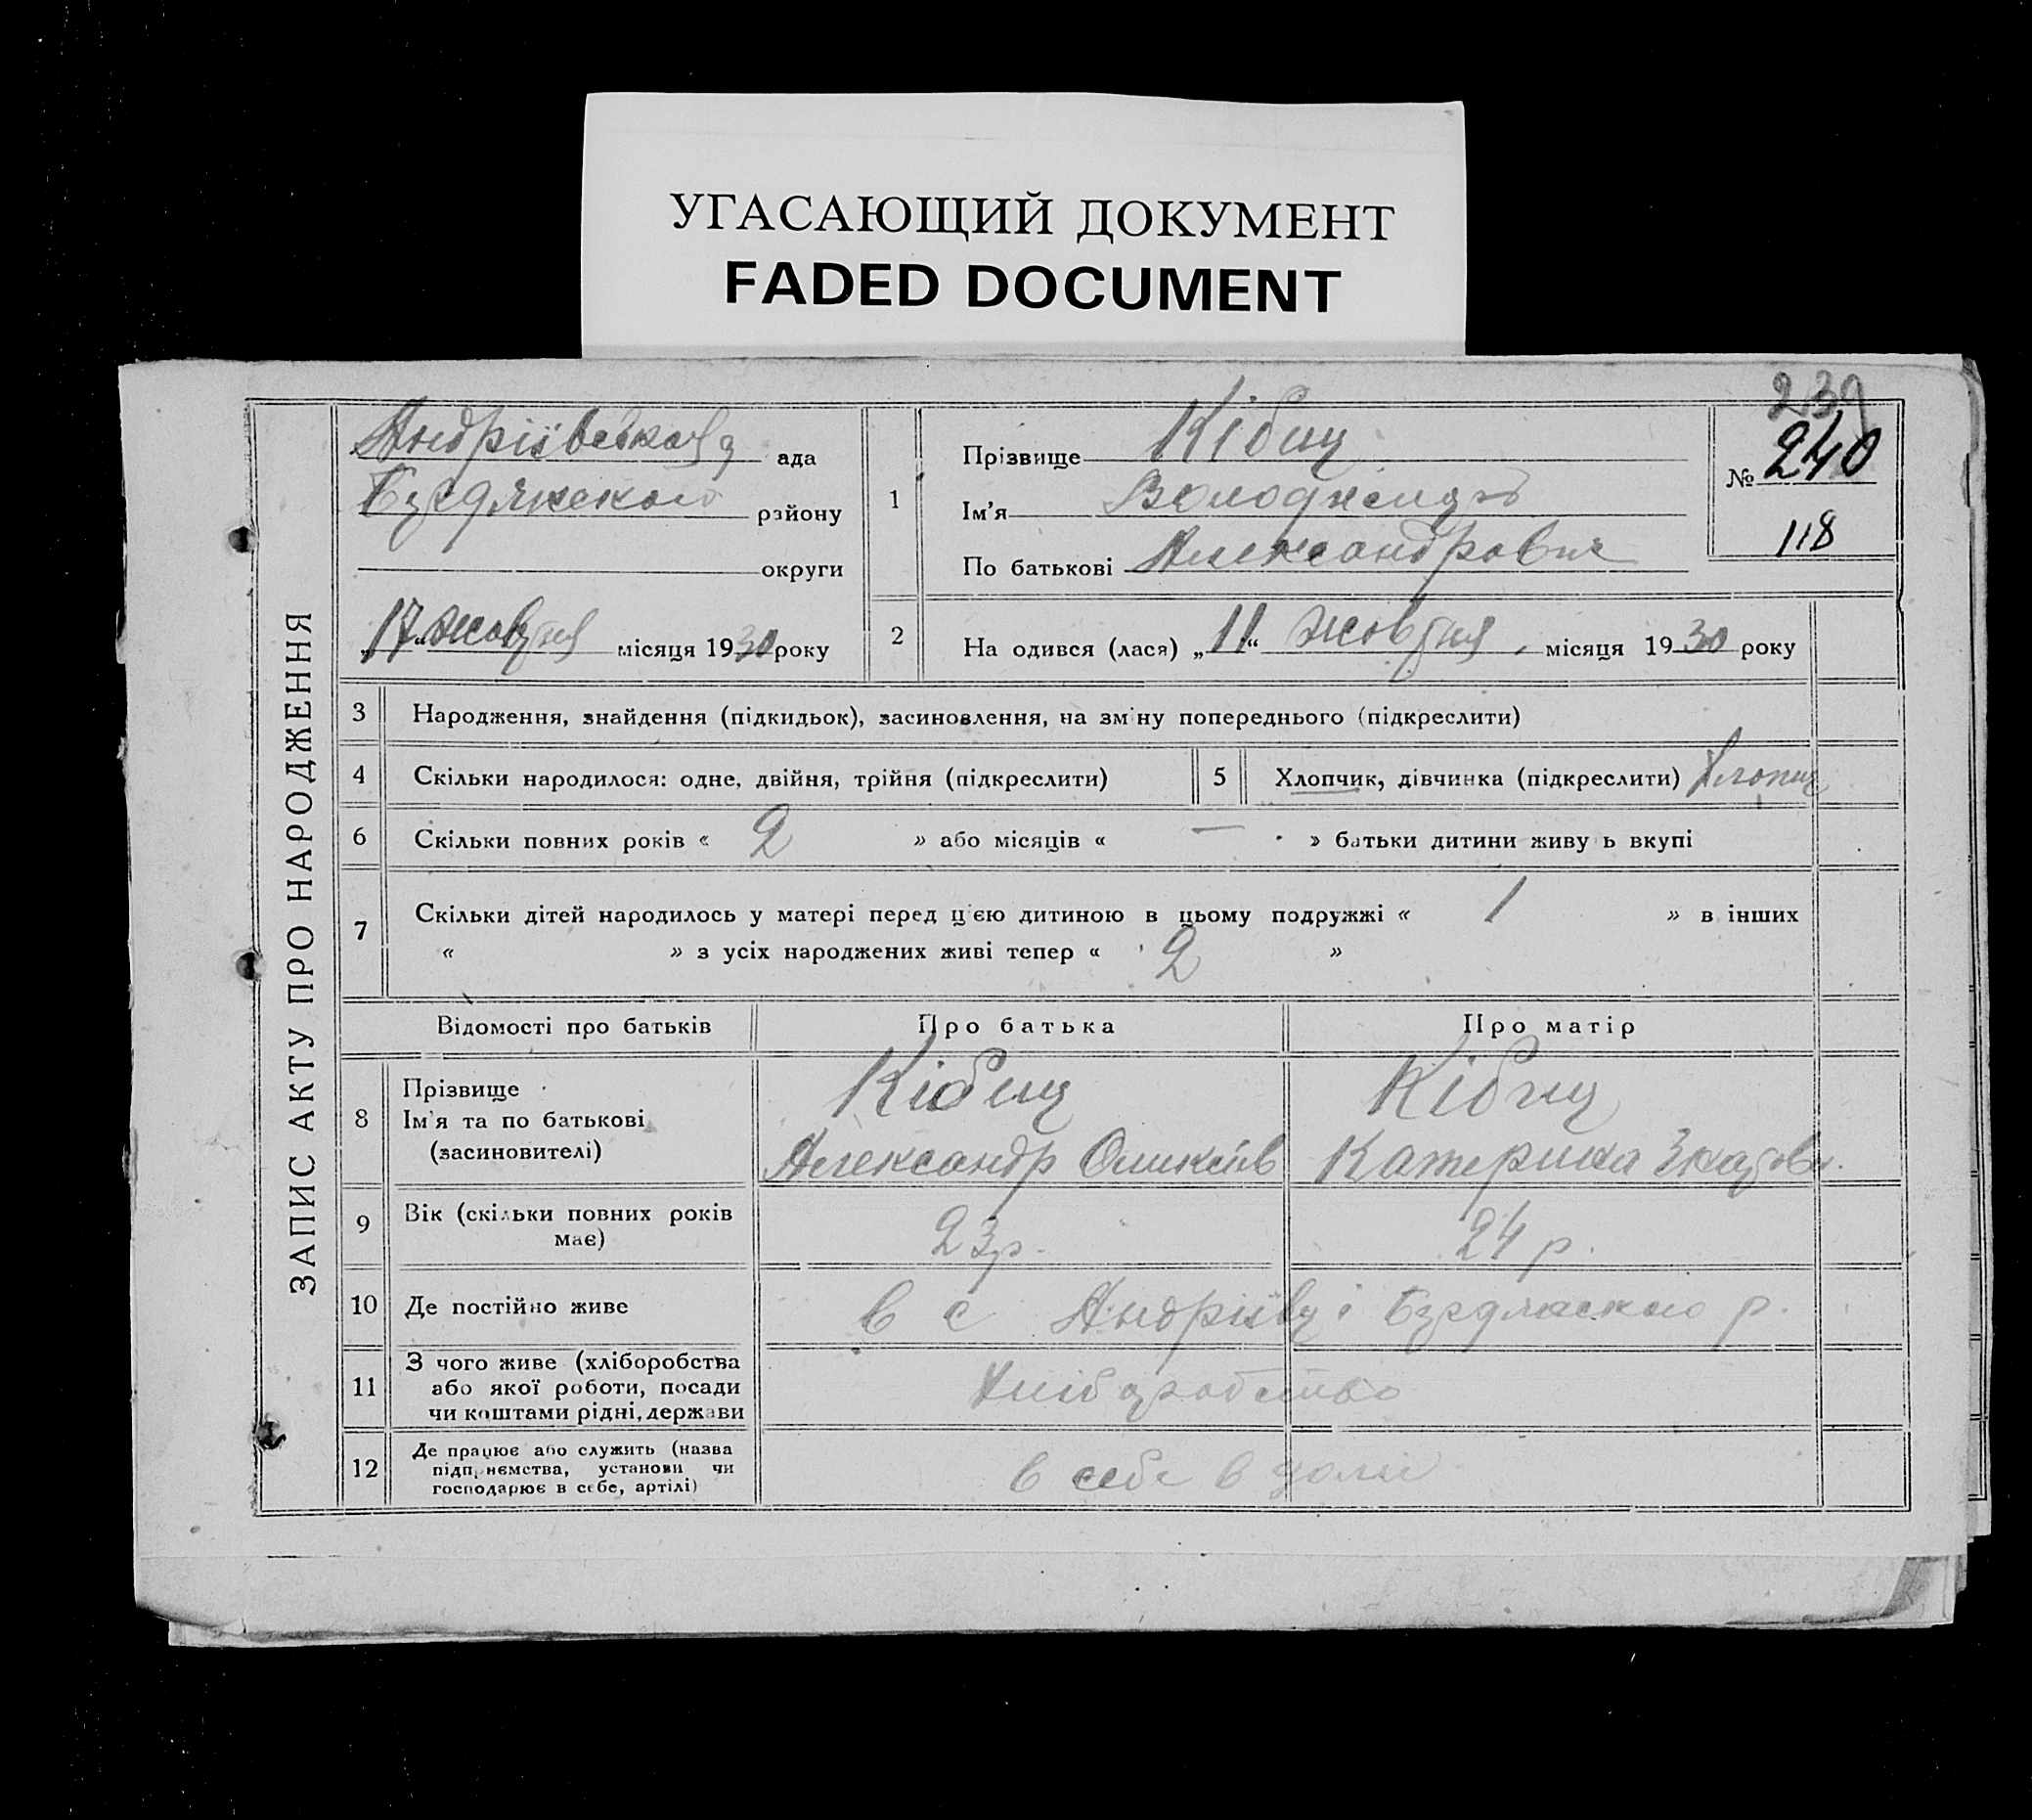 УГАСАЮЩИЙ ДОКУМЕНТ
FADED DOCUMENT
ЗАПИС АКТУ ПРО НАРОДЖЕННЯ
Андріївська ада
району
округи
"17" жовтня місяця 1930 року
1
Прізвище Кібиц
Ім'я
По батькові Александрович
239
№ 240
118
2 На одився (лася) „11“ жовтня місяця 1930 року
3 Народження, знайдення (підкидьок), засиновлення, на зміну попереднього (підкреслити)
4 Скільки народилося: одне, двійня, трійня (підкреслити) 5 Хлопчик, дівчинка (підкреслити) Хлопиц
6 Скільки повних років « 2 » або місяців « — » батьки дитини живу ь вкупі
7 Скільки дітей народилось у матері перед цією дитиною в цьому подружжі « 1 » в інших
« » з усіх народжених живі тепер « 2 »
Відомості про батьків Про батька Про матір
8 Прізвище Кібиц Кібиц
Ім'я та по батькові Александр Катерина
(засиновителі)
9 Вік (скільки повних років має) 23 р. 24 р.
10 Де постійно живе в с Андріївці р.
11 З чого живе (хліборобства
або якої роботи, посади
чи коштами рідні, держави
12 Де працює або служить (назва
підприємства, установи чи
господарює в себе, артілі) в себе в